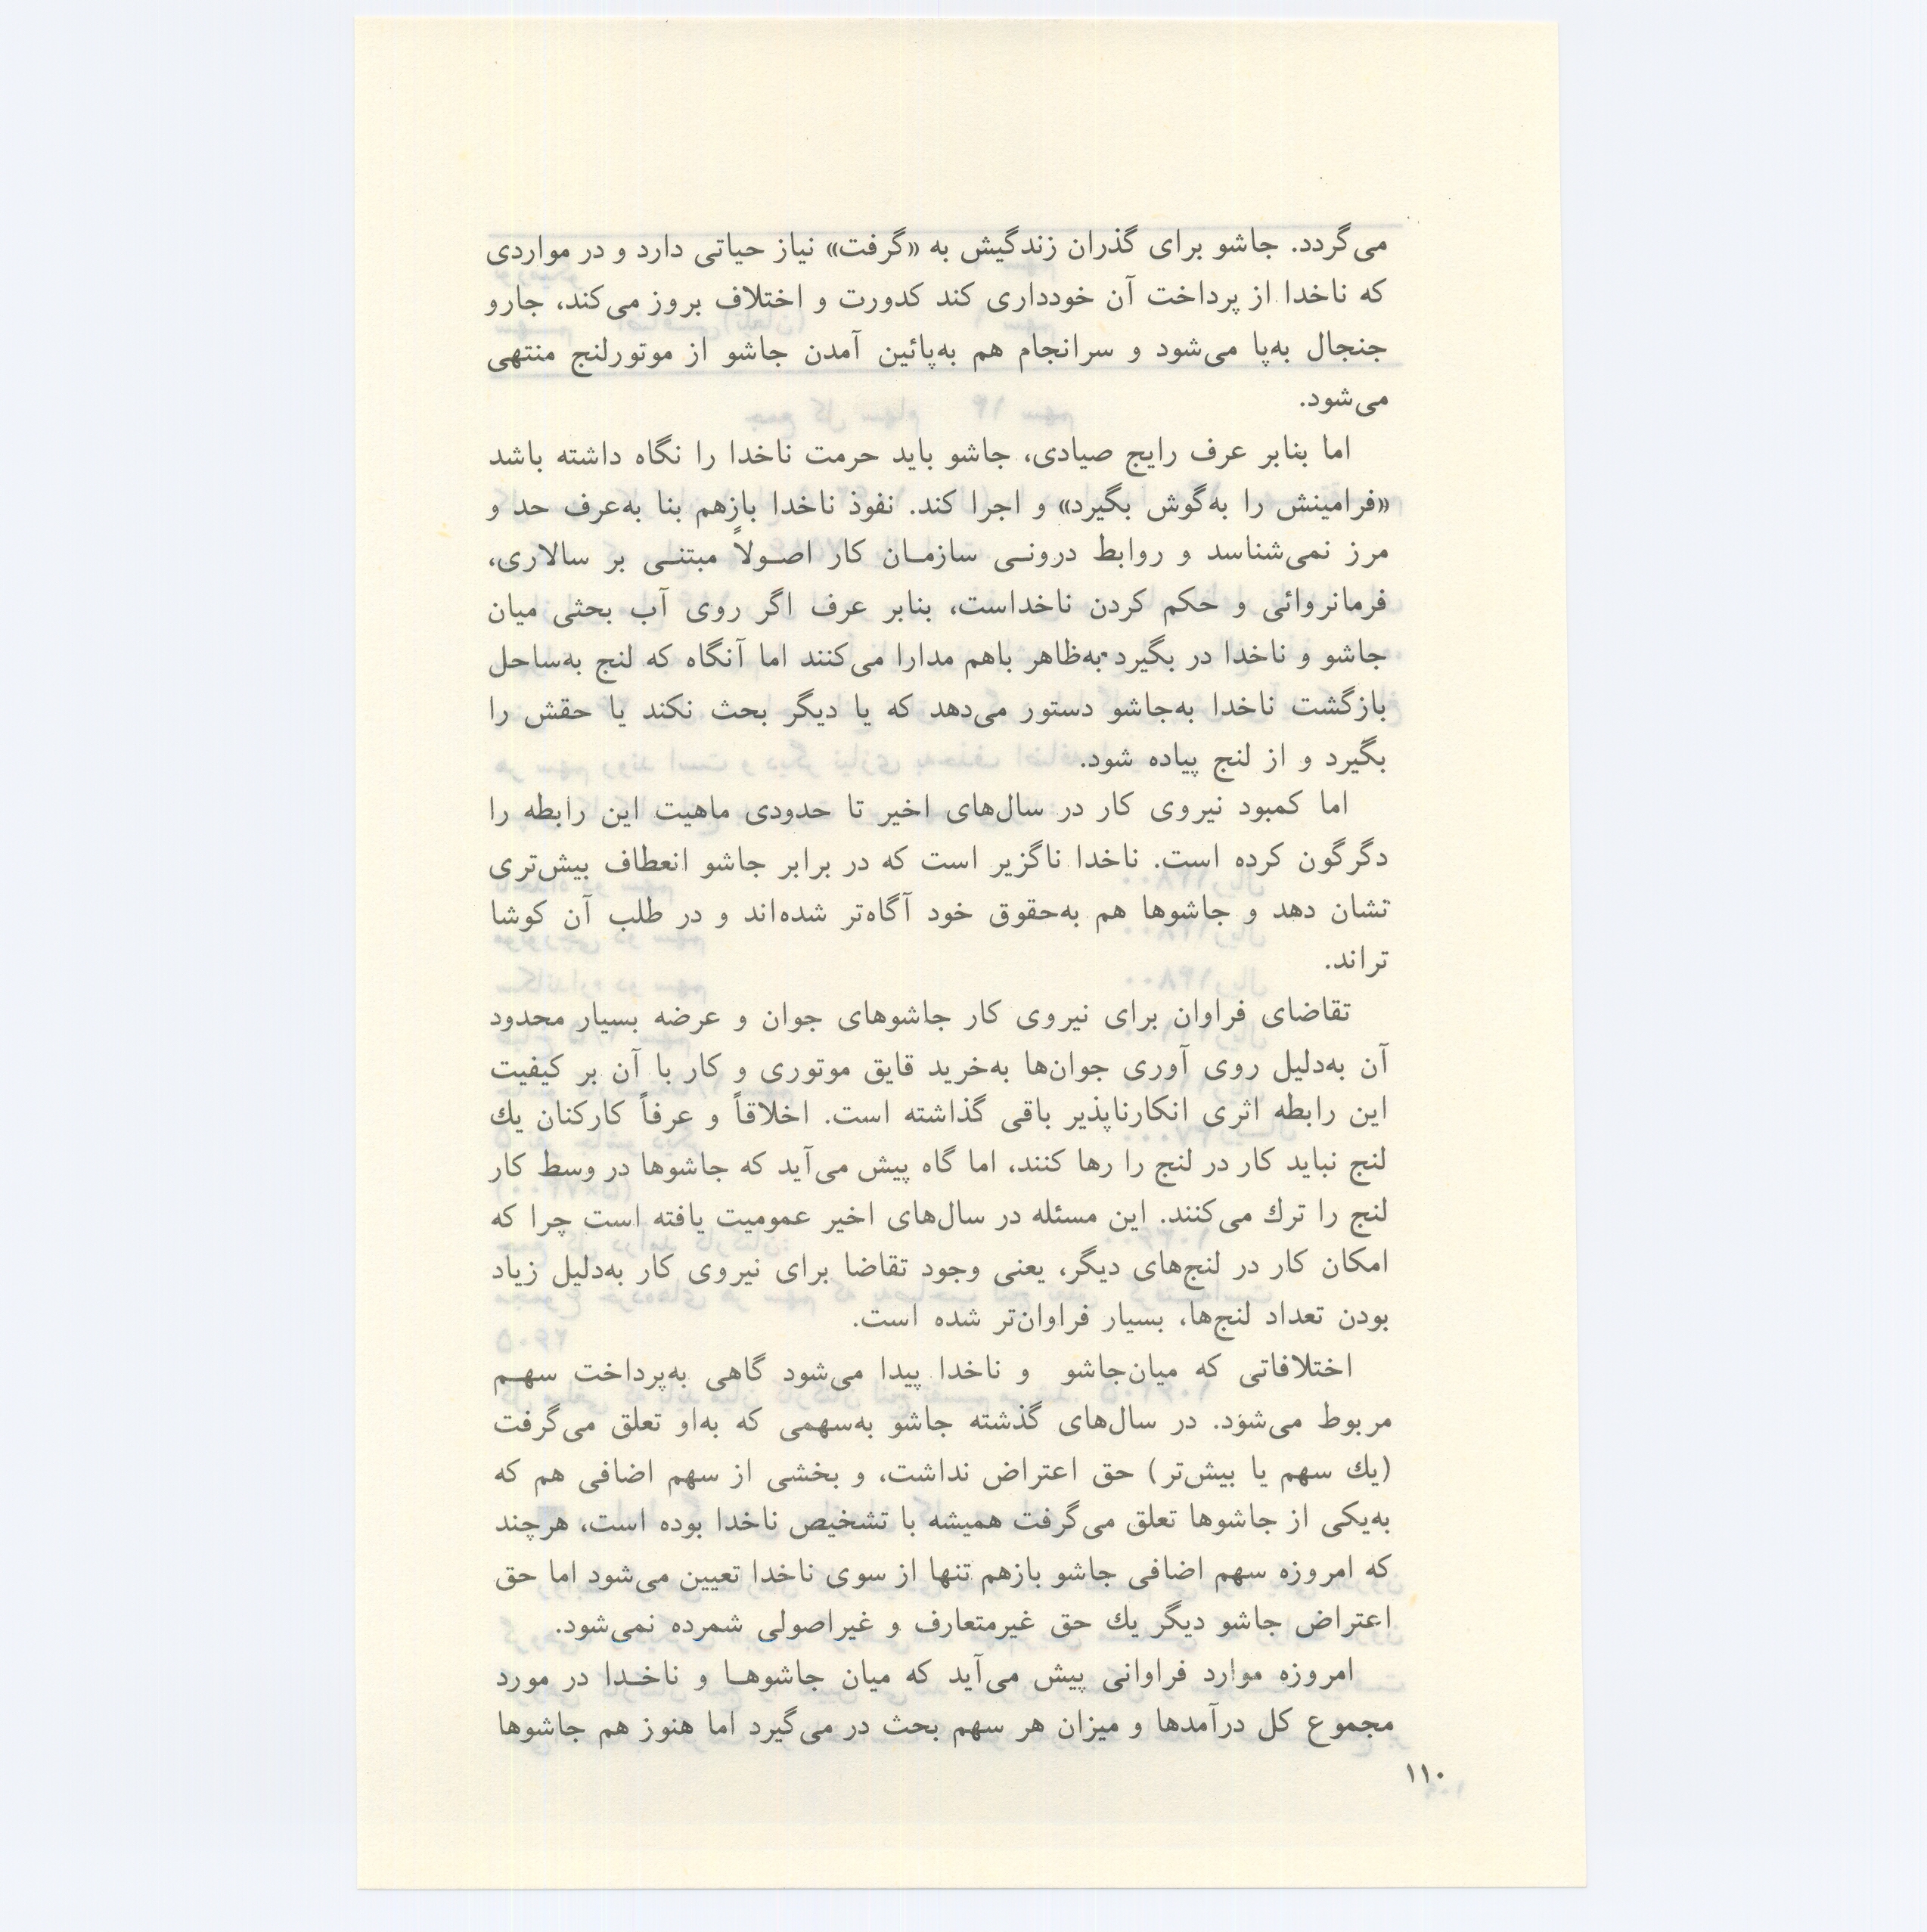 می‌گردد. جاشو برای گذران زندگیش به «گرفت» نیاز حیاتی دارد و در مواردی
که ناخدا از پرداخت آن خودداری کند کدورت و اختلاف بروز می‌کند، جارو
جنجال به‌پا می‌شود و سرانجام هم به‌پائین آمدن جاشو از موتورلنج منتهی
می‌شود.
اما بنابر عرف رایج صیادی، جاشو باید حرمت ناخدا را نگاه داشته باشد
«فرامینش را به‌گوش بگیرد» و اجرا کند. نفوذ ناخدا بازهم بنا به‌عرف حد و
مرز نمی‌شناسد و روابط درونـی سازمـان کار اصـولاً مبتنـی بر سالاری،
فرمانروائی و حکم کردن ناخداست، بنابر عرف اگر روی آب بحثی میان
جاشو و ناخدا در بگیرد به‌ظاهر باهم مدارا می‌کنند اما آنگاه که لنج به‌ساحل
بازگشت ناخدا به‌جاشو دستور می‌دهد که یا دیگر بحث نکند یا حقش را
بگیرد و از لنج پیاده شود.
اما کمبود نیروی کار در سال‌های اخیر تا حدودی ماهیت این رابطه را
دگرگون کرده است. ناخدا ناگزیر است که در برابر جاشو انعطاف بیش‌تری
نشان دهد و جاشوها هم به‌حقوق خود آگاه‌تر شده‌اند و در طلب آن کوشا
تراند.
تقاضای فراوان برای نیروی کار جاشوهای جوان و عرضه بسیار محدود
آن به‌دلیل روی آوری جوان‌ها به‌خرید قایق موتوری و کار با آن بر کیفیت
این رابطه اثری انکارناپذیر باقی گذاشته است. اخلاقاً و عرفاً کارکنان یك
لنج نباید کار در لنج را رها کنند، اما گاه پیش می‌آید که جاشوها در وسط کار
لنج را ترك می‌کنند. این مسئله در سال‌های اخیر عمومیت یافته است چرا که
امکان کار در لنج‌های دیگر، یعنی وجود تقاضا برای نیروی کار به‌دلیل زیاد
بودن تعداد لنج‌ها، بسیار فراوان‌تر شده است.
اختلافاتی که میان‌جاشو و ناخدا پیدا می‌شود گاهی به‌پرداخت سهـم
مربوط می‌شود. در سال‌های گذشته جاشو به‌سهمی که به‌او تعلق می‌گرفت
(یك سهم یا بیش‌تر) حق اعتراض نداشت، و بخشی از سهم اضافی هم که
به‌یکی از جاشوها تعلق می‌گرفت همیشه با تشخیص ناخدا بوده است، هرچند
که امروزه سهم اضافی جاشو بازهم تنها از سوی ناخدا تعیین می‌شود اما حق
اعتراض جاشو دیگر یك حق غیرمتعارف و غیراصولی شمرده نمی‌شود.
امروزه موارد فراوانی پیش می‌آید که میان جاشوهـا و ناخـدا در مورد
مجموع کل درآمدها و میزان هر سهم بحث در می‌گیرد اما هنوز هم جاشوها
۱۱۰